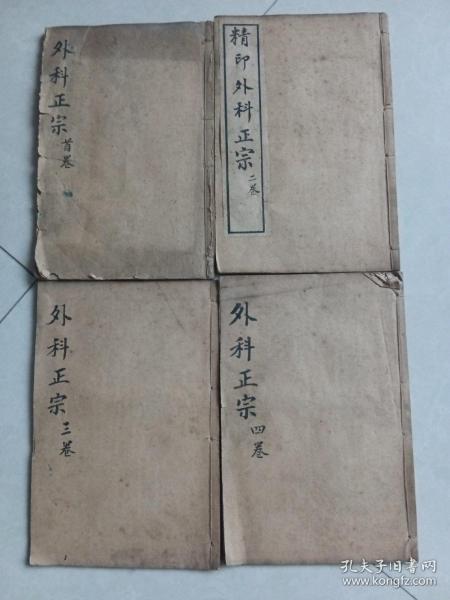 外科正宗 首卷
精印外科正宗 二卷
外科正宗 三卷
外科正宗 四卷
孔夫子旧书网
www.kongfz.com